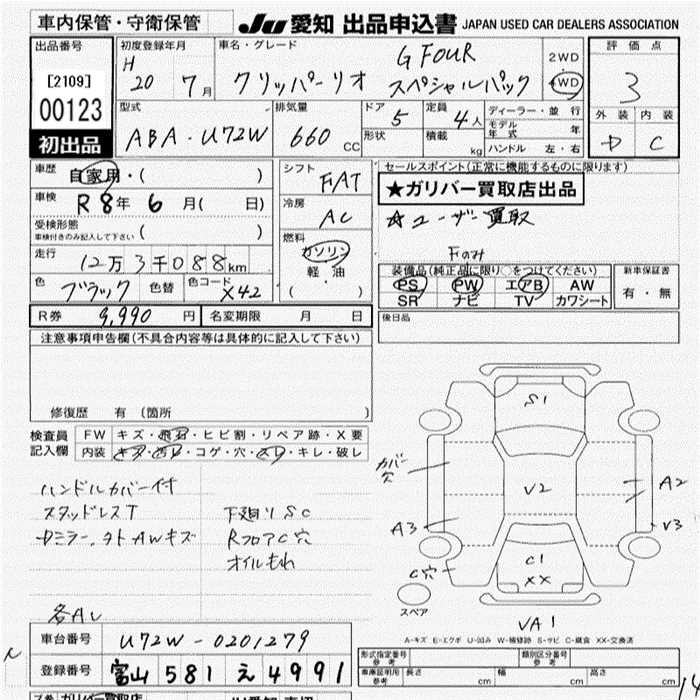 車内保管・守衛保管
JU 愛知 出品申込書 JAPAN USED CAR DEALERS ASSOCIATION
出品番号
[2109]
00123
初出品
初度登録年月
H 20 7月
車名・グレード
クリッパーリオ
G FOUR
スペシャルパック
2WD
4WD
評価点
3
外装 内装
D C
型式
ABA-U72W
排気量
660 CC
ドア 5
形状
定員 4人
積載 kg
ディーラー・並行
モデル年式 年
ハンドル 左・右
車歴 自家用・( )
車検 R8年 6月( 日)
受検形態
車検付きのみ記入して下さい ( )
走行 12万3千088km
色 ブラック 色替 色コード X42
シフト
FAT
冷房
AC
燃料
ガソリン
軽・油
( ・ )
セールスポイント(正常に機能するものに限ります)
★ガリバー買取店出品
☆ユーザー買取
Fのみ
装備品(純正品に限り○をつけてください)
PS PW エアB AW
SR ナビ TV カワシート
新車保証書
有・無
R券 9,990 円 名変期限 月 日
後日品
注意事項申告欄(不具合内容等は具体的に記入して下さい)
修復歴 有 (箇所 )
検査員記入欄
FW キズ・飛石・ヒビ割・リペア跡・X要
内装 キズ・汚レ・コゲ・穴・スレ・キレ・破レ
ハンドルカバー付
スタッドレスT
Dミラー、ヲトAWキズ
下廻りSC
RフロアC穴
オイルもれ
各AU
S1
カバー穴
V2
A2
A3
V3
C1
XX
C穴
スペア
VA1
A-キズ E-エクボ U-凹み W-補修跡 S-サビ C-腐食 XX-交換済
車台番号 U72W-0201279
登録番号 富山 581 え 4991
形式指定番号 参考
類別区分番号 参考
車庫証明用 参考 長さ cm 幅 cm 高さ cm
ガリバー買取店